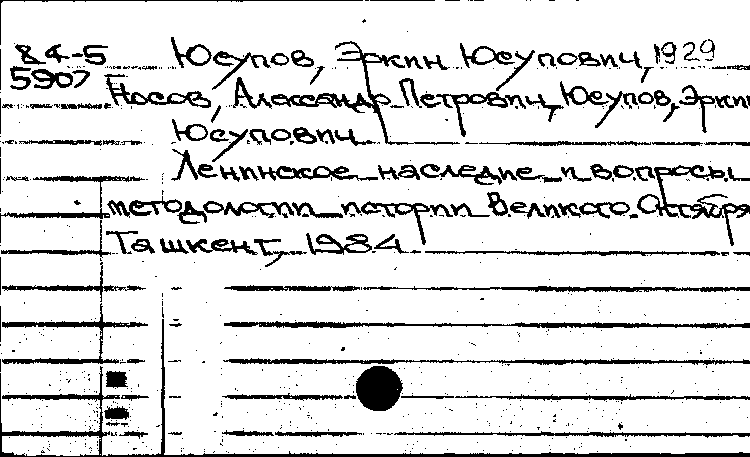 84-5 Юсупов, Эркин Юсупович, 1929
5907
Носов, Александр Петрович, Юсупов, Эркин
Юсупович
Ленинское наследие и вопросы
методологии истории Великого Октября
Ташкент, 1984